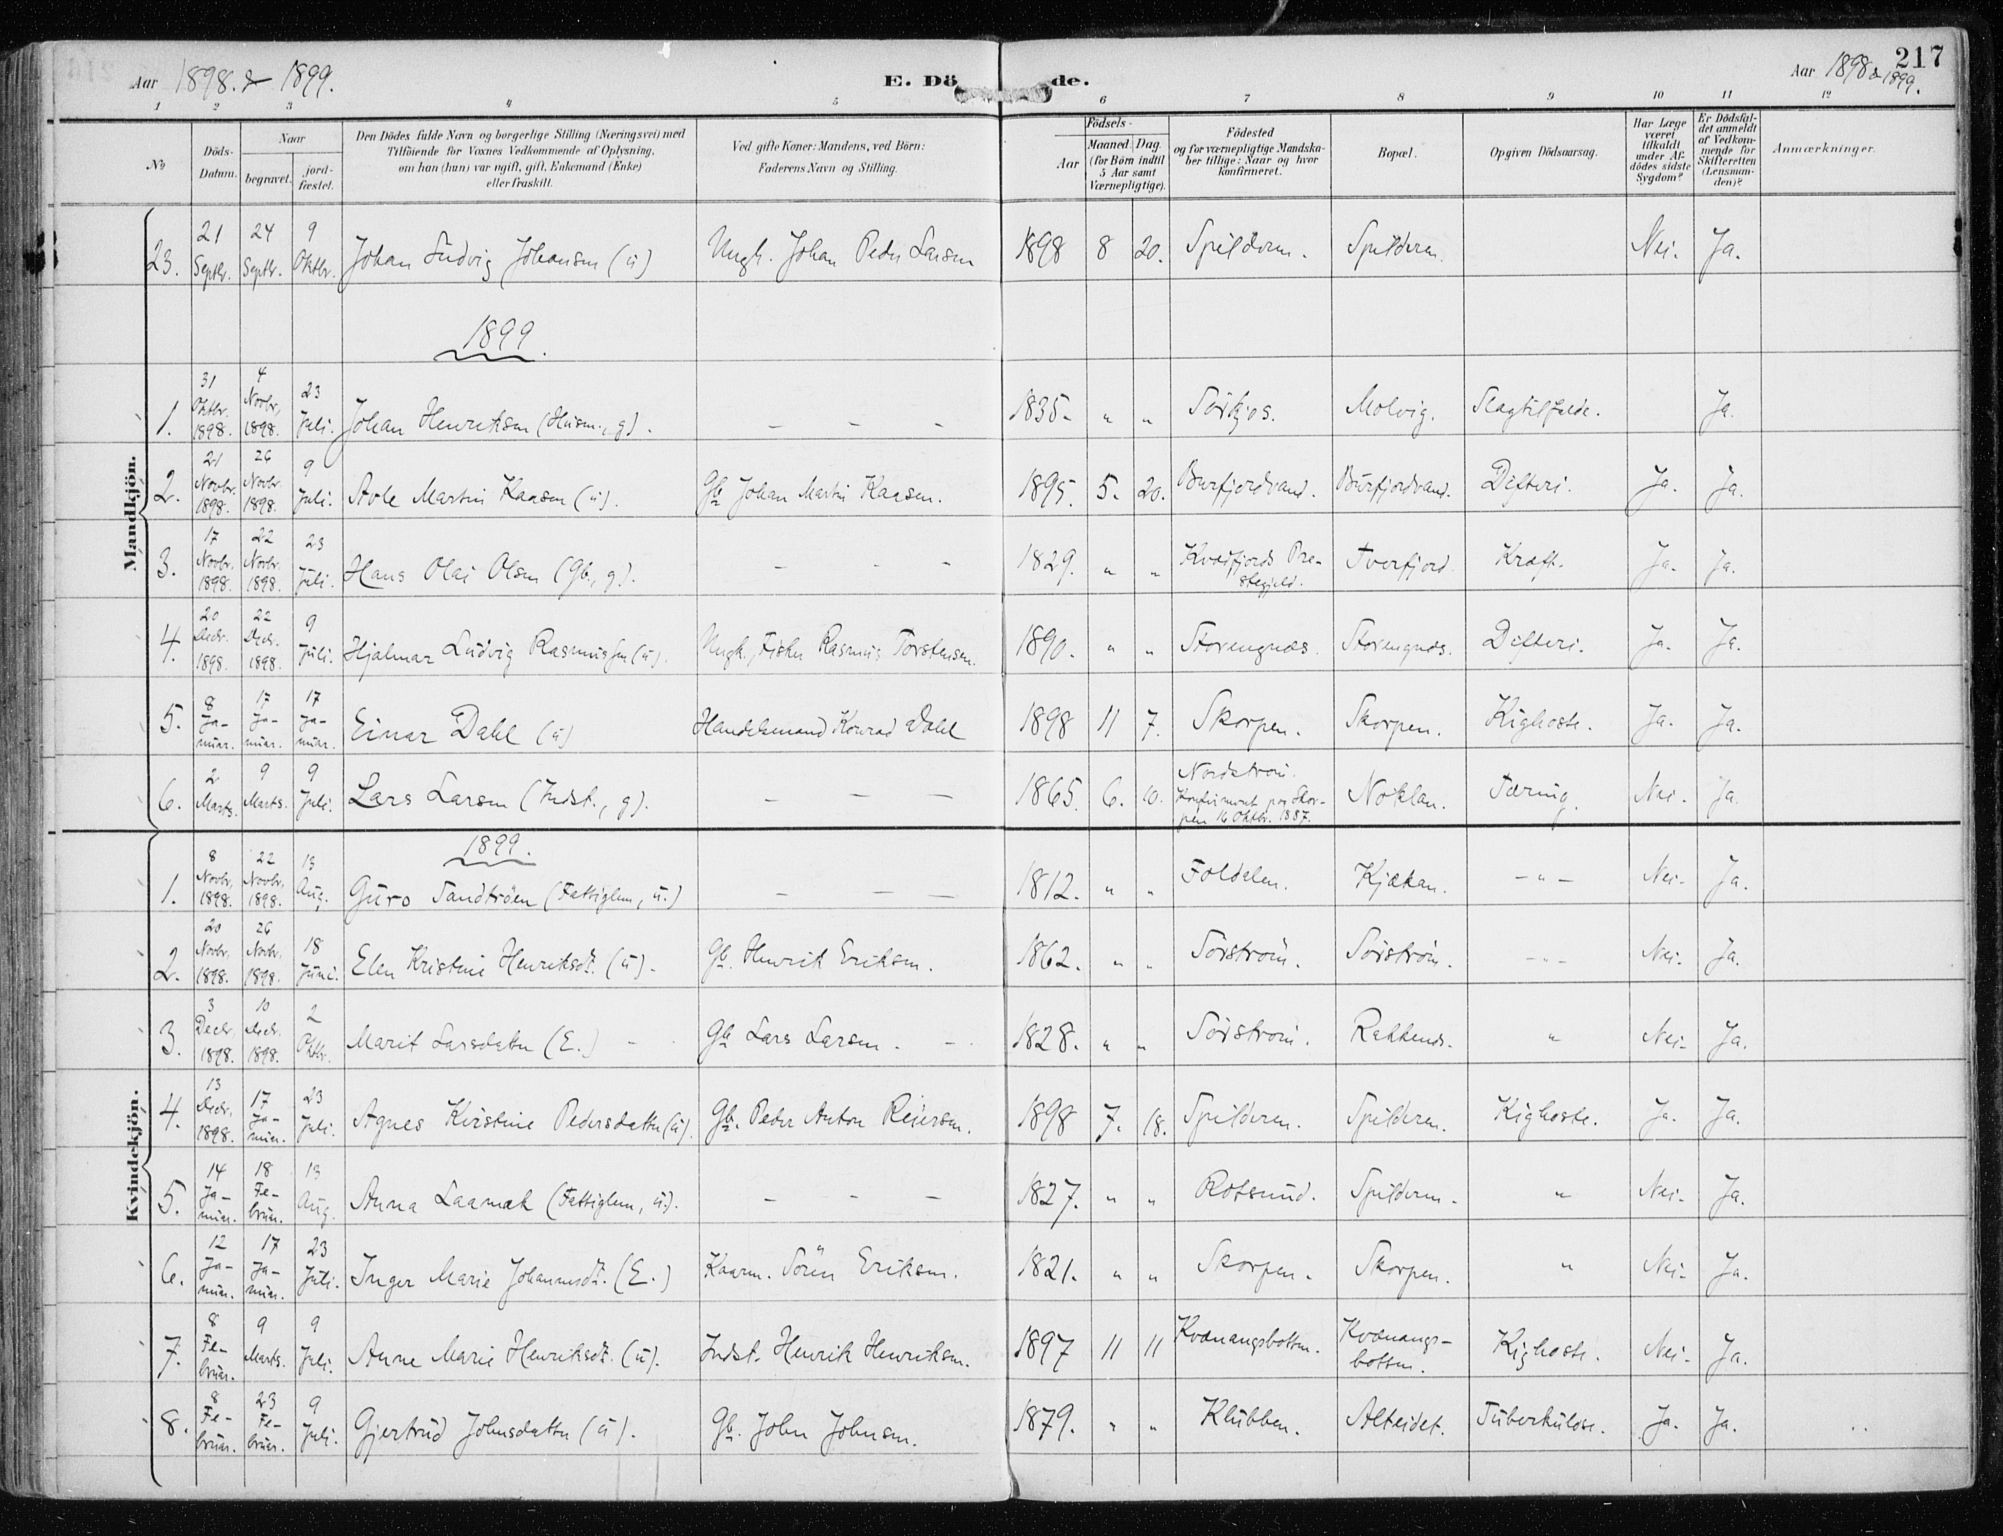 Aar 1898 & 1899. E. Dö de. Aar 1898 & 1899. 217
1 2 3 4 5 6 7 8 9 10 11 12
No Döds-Datum. Naar begravet. jordfæstet. Den Dödes fulde Navn og borgerlige Stilling (Næringsvei) med Tilföiende for Voxnes Vedkommende af Oplysning, om han (hun) var ugift, gift, Enkemand (Enke) eller fraskilt. Ved gifte Koner: Mandens, ved Børn: Faderens Navn og Stilling. Födsels- Aar Maaned. Dag. (for Børn indtil 5 Aar samt Værnepligtige). Födested og for værnepligtige Mandskaber tillige: Naar og hvor konfirmeret. Bopæl. Opgiven Dödsaarsag. Har Læge været tilkaldt under Afdödes sidste Sygdom? Er Dödsfaldet anmeldt af Vedkommende for Skifteretten (Lensmanden)? Anmærkninger.
Mandkjön.
23. 21 Septbr. 24 Septbr. 9 Oktbr. Johan Ludvig Johansen (u) Ungk. Johan Peder Larsen 1898 8 20. Spilderen. Spilderen. Nei. Ja.
1899
1. 31 Oktbr. 1898. 4 Novbr. 1898. 23 Juli. Johan Henriksen (Husm., g). — — — 1835. " " Sörkjos. Molvig. Slagtilfælde. Ja.
2. 21 Novbr. 1898. 26 Novbr. 1898. 9 Juli. Arle Martin Kaasen (u). Gb. Johan Martin Kaasen. 1895. 5. 20. Burfjordvand. Burfjordvand. Difteri. Ja. Ja.
3. 17 Novbr. 1898. 22 Novbr. 1898. 23 Juli. Hans Olai Olsen (Gb., g). — — — 1829. " " Kvædfjords Præstegjeld. Tverfjord. Kræft. Ja. Ja.
4. 20 Decbr. 1898. 22 Decbr. 1898. 9 Juli. Hjalmar Ludvig Rasmussen (u). Ungk., Fisker Rasmus Torstensen. 1890. " " Storengnæs. Storengnæs. Difteri. Ja. Ja.
5. 8 Januar. 17 Januar. 17 Januar. Einar Dahl (u) Handelsmand Konrad Dahl 1898 11 7. Skorpen. Skorpen. Kighoste. Ja. Ja.
6. 2 Marts. 9 Marts. 9 Juli. Lars Larsen (Indst., g). — — — 1865. 6. 10. Nordström. Konfirmeret paa Skorpen 16 Oktbr. 1887. Noklan. Tæring. Nei. Ja.
Kvindekjön.
1899.
1. 8 Novbr. 1898. 22 Novbr. 1898. 13 Aug. Guro Sandtröen (Fattiglem, u.) — — — 1812. " " Foldalen. Kjækan. — " — Nei. Ja.
2. 20 Novbr. 1898. 26 Novbr. 1898. 18 Juni. Elen Kristine Henriksdt. (u). Gb. Henrik Eriksen. 1862. " " Sörström. Sörström. — " — Nei. Ja.
3. 3 Decbr. 1898. 10 Decbr. 1898. 2 Oktbr. Marit Larsdatter (E.) Gb. Lars Larsen. 1828. " " Sörström. Rakkenæs. " Nei. Ja.
4. 13 Decbr. 1898. 17 Januar. 23 Juli. Agnes Kirstine Pedersdatter (u). Gb. Peder Anton Reiersen. 1898 7. 18. Spilderen. Spilderen. Kighoste. Ja. Ja.
5. 14 Januar. 18 Februar. 13 Aug. Anna Laamak (Fattiglem, u.). — — — 1827. " " Rotsund. Spilderen. " Nei. Ja.
6. 12 Januar. 17 Januar. 23 Juli. Inger Marie Johannesdt. (E.) Kaarm. Sören Eriksen. 1821. " " Skorpen. Skorpen. " Nei. Ja.
7. 8 Februar. 9 Marts. 9 Juli. Anne Marie Henriksdt. (u). Indst. Henrik Henriksen. 1897 11 11 Kvænangsbotten. Kvænangsbotten. Kighoste. Nei. Ja.
8. 8 Februar. 23 Februar. 9 Juli. Gjertrud Johnsdatter (u). Gb. John Johnsen. 1879. " " Klubben. Alteidet. Tuberkulose. Ja. Ja.